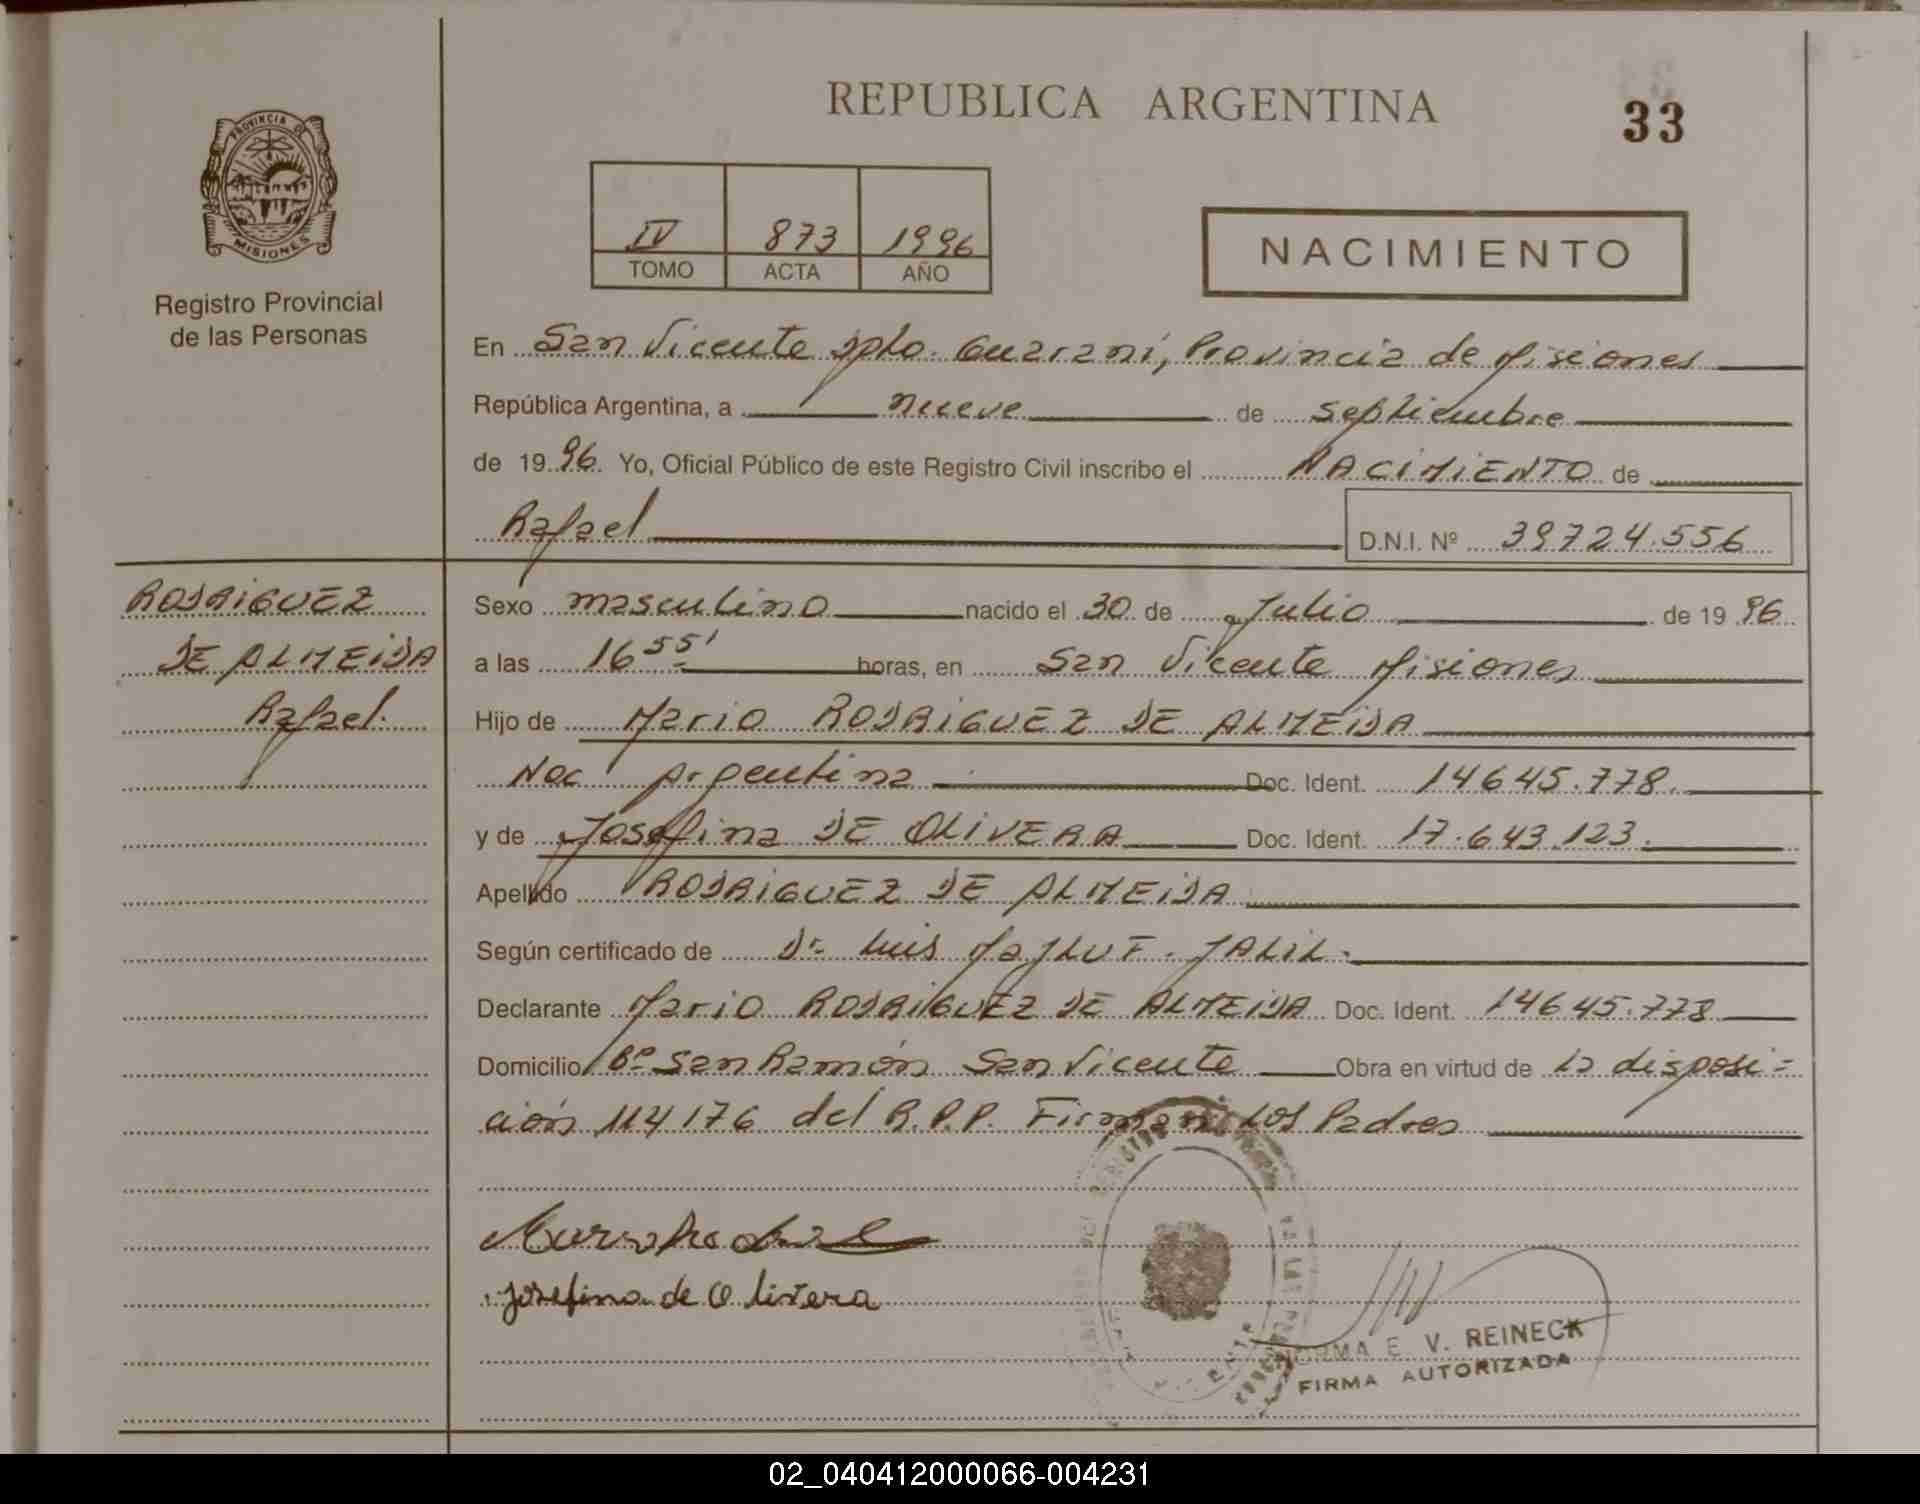 REPUBLICA ARGENTINA
33
PROVINCIA DE
MISIONES
Registro Provincial
de las Personas
IV 873 1996
TOMO ACTA AÑO
NACIMIENTO
En San Vicente Dpto. Guaraní, Provincia de Misiones
República Argentina, a nueve de septiembre
de 1996. Yo, Oficial Público de este Registro Civil inscribo el NACIMIENTO de
Rafael D.N.I. Nº 39724.556
RODRIGUEZ
DE ALMEIDA
Rafael.
Sexo masculino nacido el 30 de Julio de 1996
a las 16 55' horas, en San Vicente Misiones
Hijo de Mario RODRIGUEZ DE ALMEIDA
Nac. Argentina Doc. Ident. 14645.778.
y de Josefina DE OLIVERA Doc. Ident. 17.643.123.
Apellido RODRIGUEZ DE ALMEIDA
Según certificado de Dr. Luis JALIL.
Declarante Mario RODRIGUEZ DE ALMEIDA Doc. Ident. 14645.778
Domicilio Bº San Ramón San Vicente Obra en virtud de la disposi=
ción 114176 del R.P.P. Firman Los Padres
Josefina de Olivera
E. V. REINECK
FIRMA AUTORIZADA
02_040412000066-004231